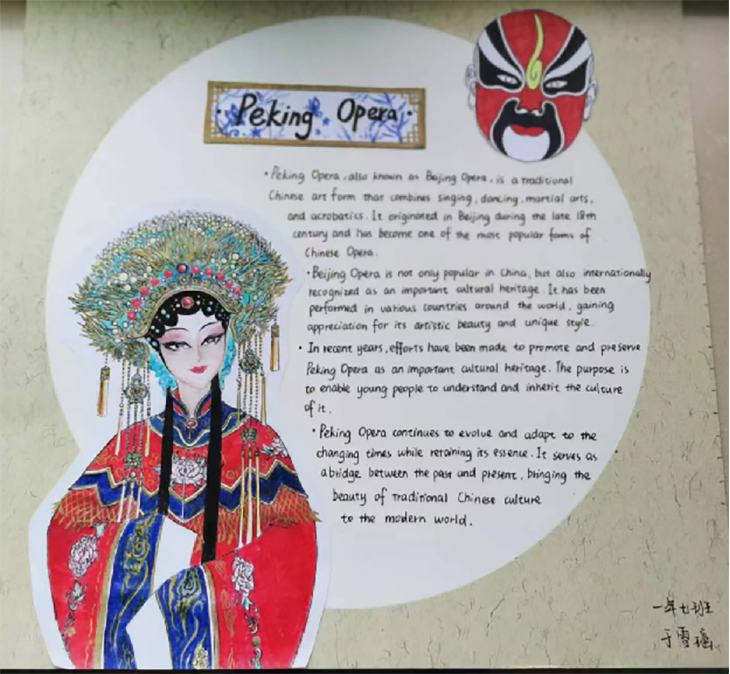 · Peking Opera ·
· Peking Opera, also known as Beijing Opera, is a traditional
Chinese art form that combines singing, dancing, martial arts,
and acrobatics. It originated in Beijing during the late 18th
century and has become one of the most popular forms of
Chinese Opera.
· Beijing Opera is not only popular in China, but also internationally
recognized as an important cultural heritage. It has been
performed in various countries around the world, gaining
appreciation for its artistic beauty and unique style.
· In recent years, efforts have been made to promote and preserve
Peking Opera as an important cultural heritage. The purpose is
to enable young people to understand and inherit the culture
of it.
· Peking Opera continues to evolve and adapt to the
changing times while retaining its essence. It serves as
a bridge between the past and present, bringing the
beauty of traditional Chinese culture
to the modern world.
一年七班
于雪瑶